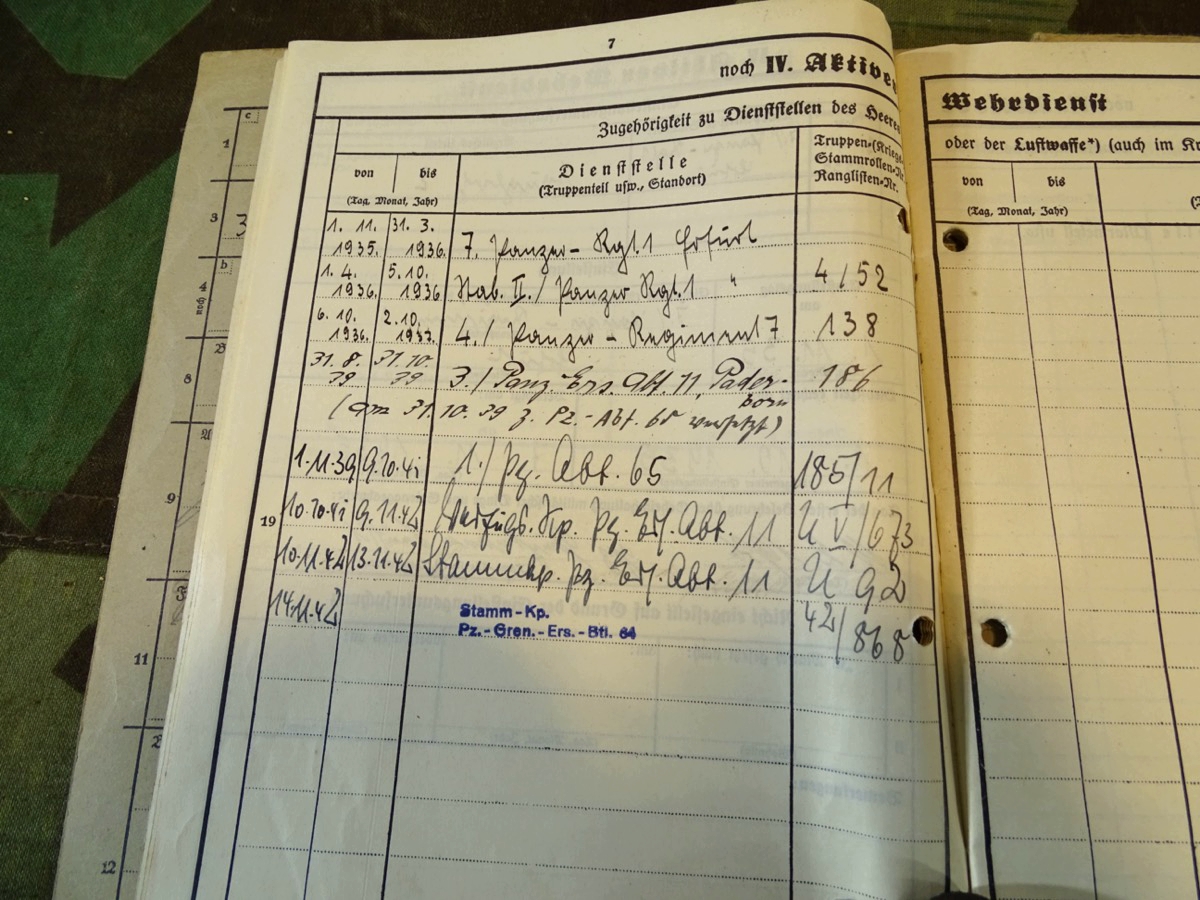 7
noch IV. Aktive
Zugehörigkeit zu Dienststellen des Heeres
von bis
(Tag, Monat, Jahr)
Dienststelle
(Truppenteil usw., Standort)
Truppen-(Kriegs
Stammrollen-Nr.
Ranglisten-Nr.
1. 11. 1935. 31. 3. 1936. 7. Panzer-Rgt. 1 Erfurt
1. 4. 1936. 5. 10. 1936 Stab. II. / Panzer Rgt. 1 " 4/52
6. 10. 1936. 2. 10. 1937. 4. / Panzer-Regiment 7 138
31. 8. 39 31. 10. 39 3. / Panz. Ers. Abt. 11, Pader-born 186
(am 31. 10. 39 z. Pz.-Abt. 65 versetzt)
1.11.39 9.10.41 1. / Pz. Abt. 65 185/11
19
10.10.41 9.11.42 Kp. Pz. Ers. Abt. 11 U V/673
10.11.42 13.11.42 Stammkp. Pz. Ers. Abt. 11 U 92
14.11.42 Stamm-Kp.
Pz.-Gren.-Ers.-Btl. 64 42/868
Wehrdienst
oder der Luftwaffe*) (auch im Kr
von bis
(Tag, Monat, Jahr)
c
1
3
b
noch 4
8
9
11
12